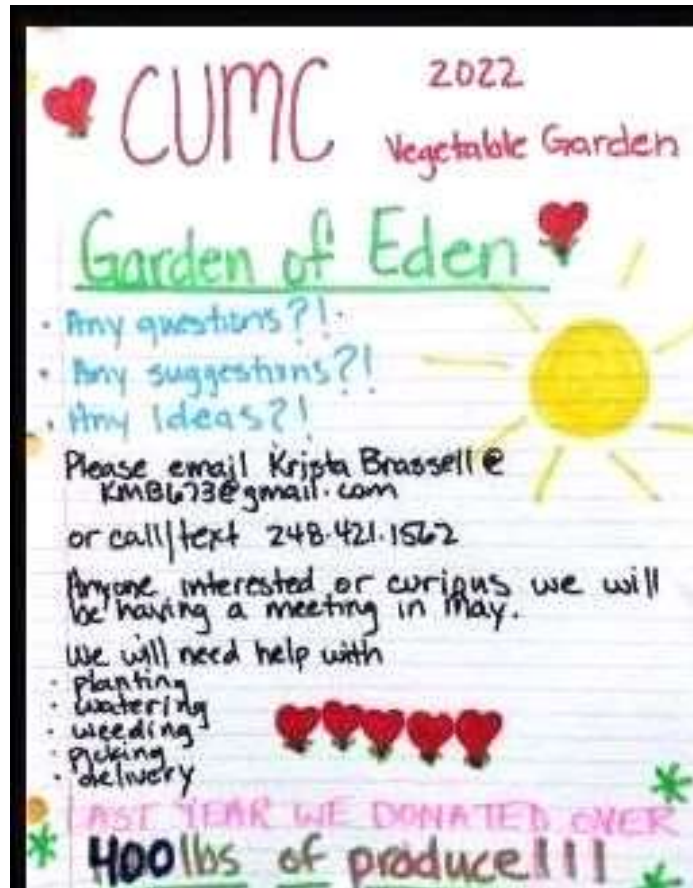 CUMC 2022
Vegetable Garden
Garden of Eden
· Any questions?!
· Any suggestions?!
· Any ideas?!
Please email Krista Brassell @
KMB673@gmail.com
or call/text 248.421.1562
Anyone interested or curious we will
be having a meeting in may.
We will need help with
· planting
· watering
· weeding
· picking
· delivery
LAST YEAR WE DONATED OVER
400lbs of produce!!!